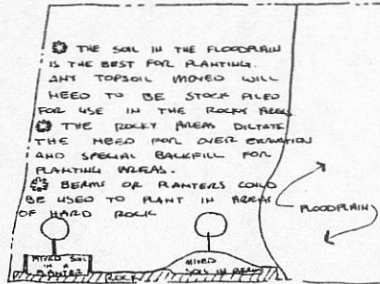 THE SOIL IN THE FLOODPLAIN
IS THE BEST FOR PLANTING.
ANY TOPSOIL MOVED WILL
NEED TO BE STOCK PILED
FOR USE IN THE ROCKY AREAS
THE ROCKY AREAS DICTATE
THE NEED FOR OVER EXCAVATION
AND SPECIAL BACKFILL FOR
PLANTING AREAS.
BERMS OR PLANTERS COULD
BE USED TO PLANT IN AREAS
OF HARD ROCK
FLOODPLAIN
MIXED SOIL
IN A
PLANTER
MIXED
SOIL IN BERM
ROCK